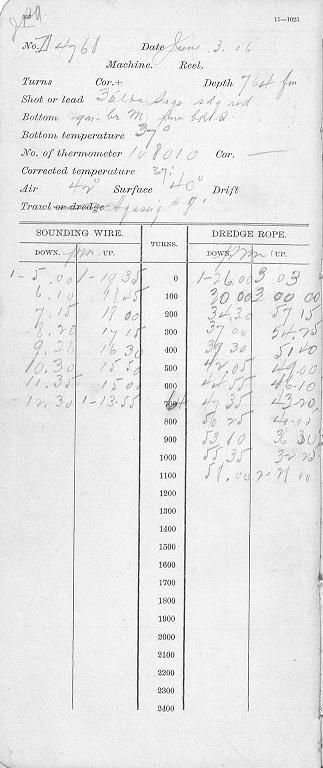 11—1023
No. D 4768 Date June 3. 06
Machine. Reel.
Turns Cor. + Depth 764 fm
Shot or lead 35 lbs. sdg rod
Bottom gn. br M. fne bk S.
Bottom temperature 37°
No. of thermometer 108010 Cor. —
Corrected temperature 37°
Air 42° Surface 40° Drift
Trawl or dredge Agassiz
SOUNDING WIRE. TURNS. DREDGE ROPE.
DOWN. UP. DOWN. UP.
1- 5.00 1-19 35 0 1-26.00 3 03
6.10 18 45 100 30.00 3 00 00
7.15 18 00 200 34.20 57.15
8.20 17 15 300 37 00 54.25
9.20 16.30 400 39 30 51.40
10.30 15.50 500 42.05 49.00
11.35 15 00 600 44.55 46.10
12.30 1-13.55 700 47 35 43.20
800 50 25
900 53 10 36 30
1000 55 35 32 25
1100 58.00
1200
1300
1400
1500
1600
1700
1800
1900
2000
2100
2200
2300
2400